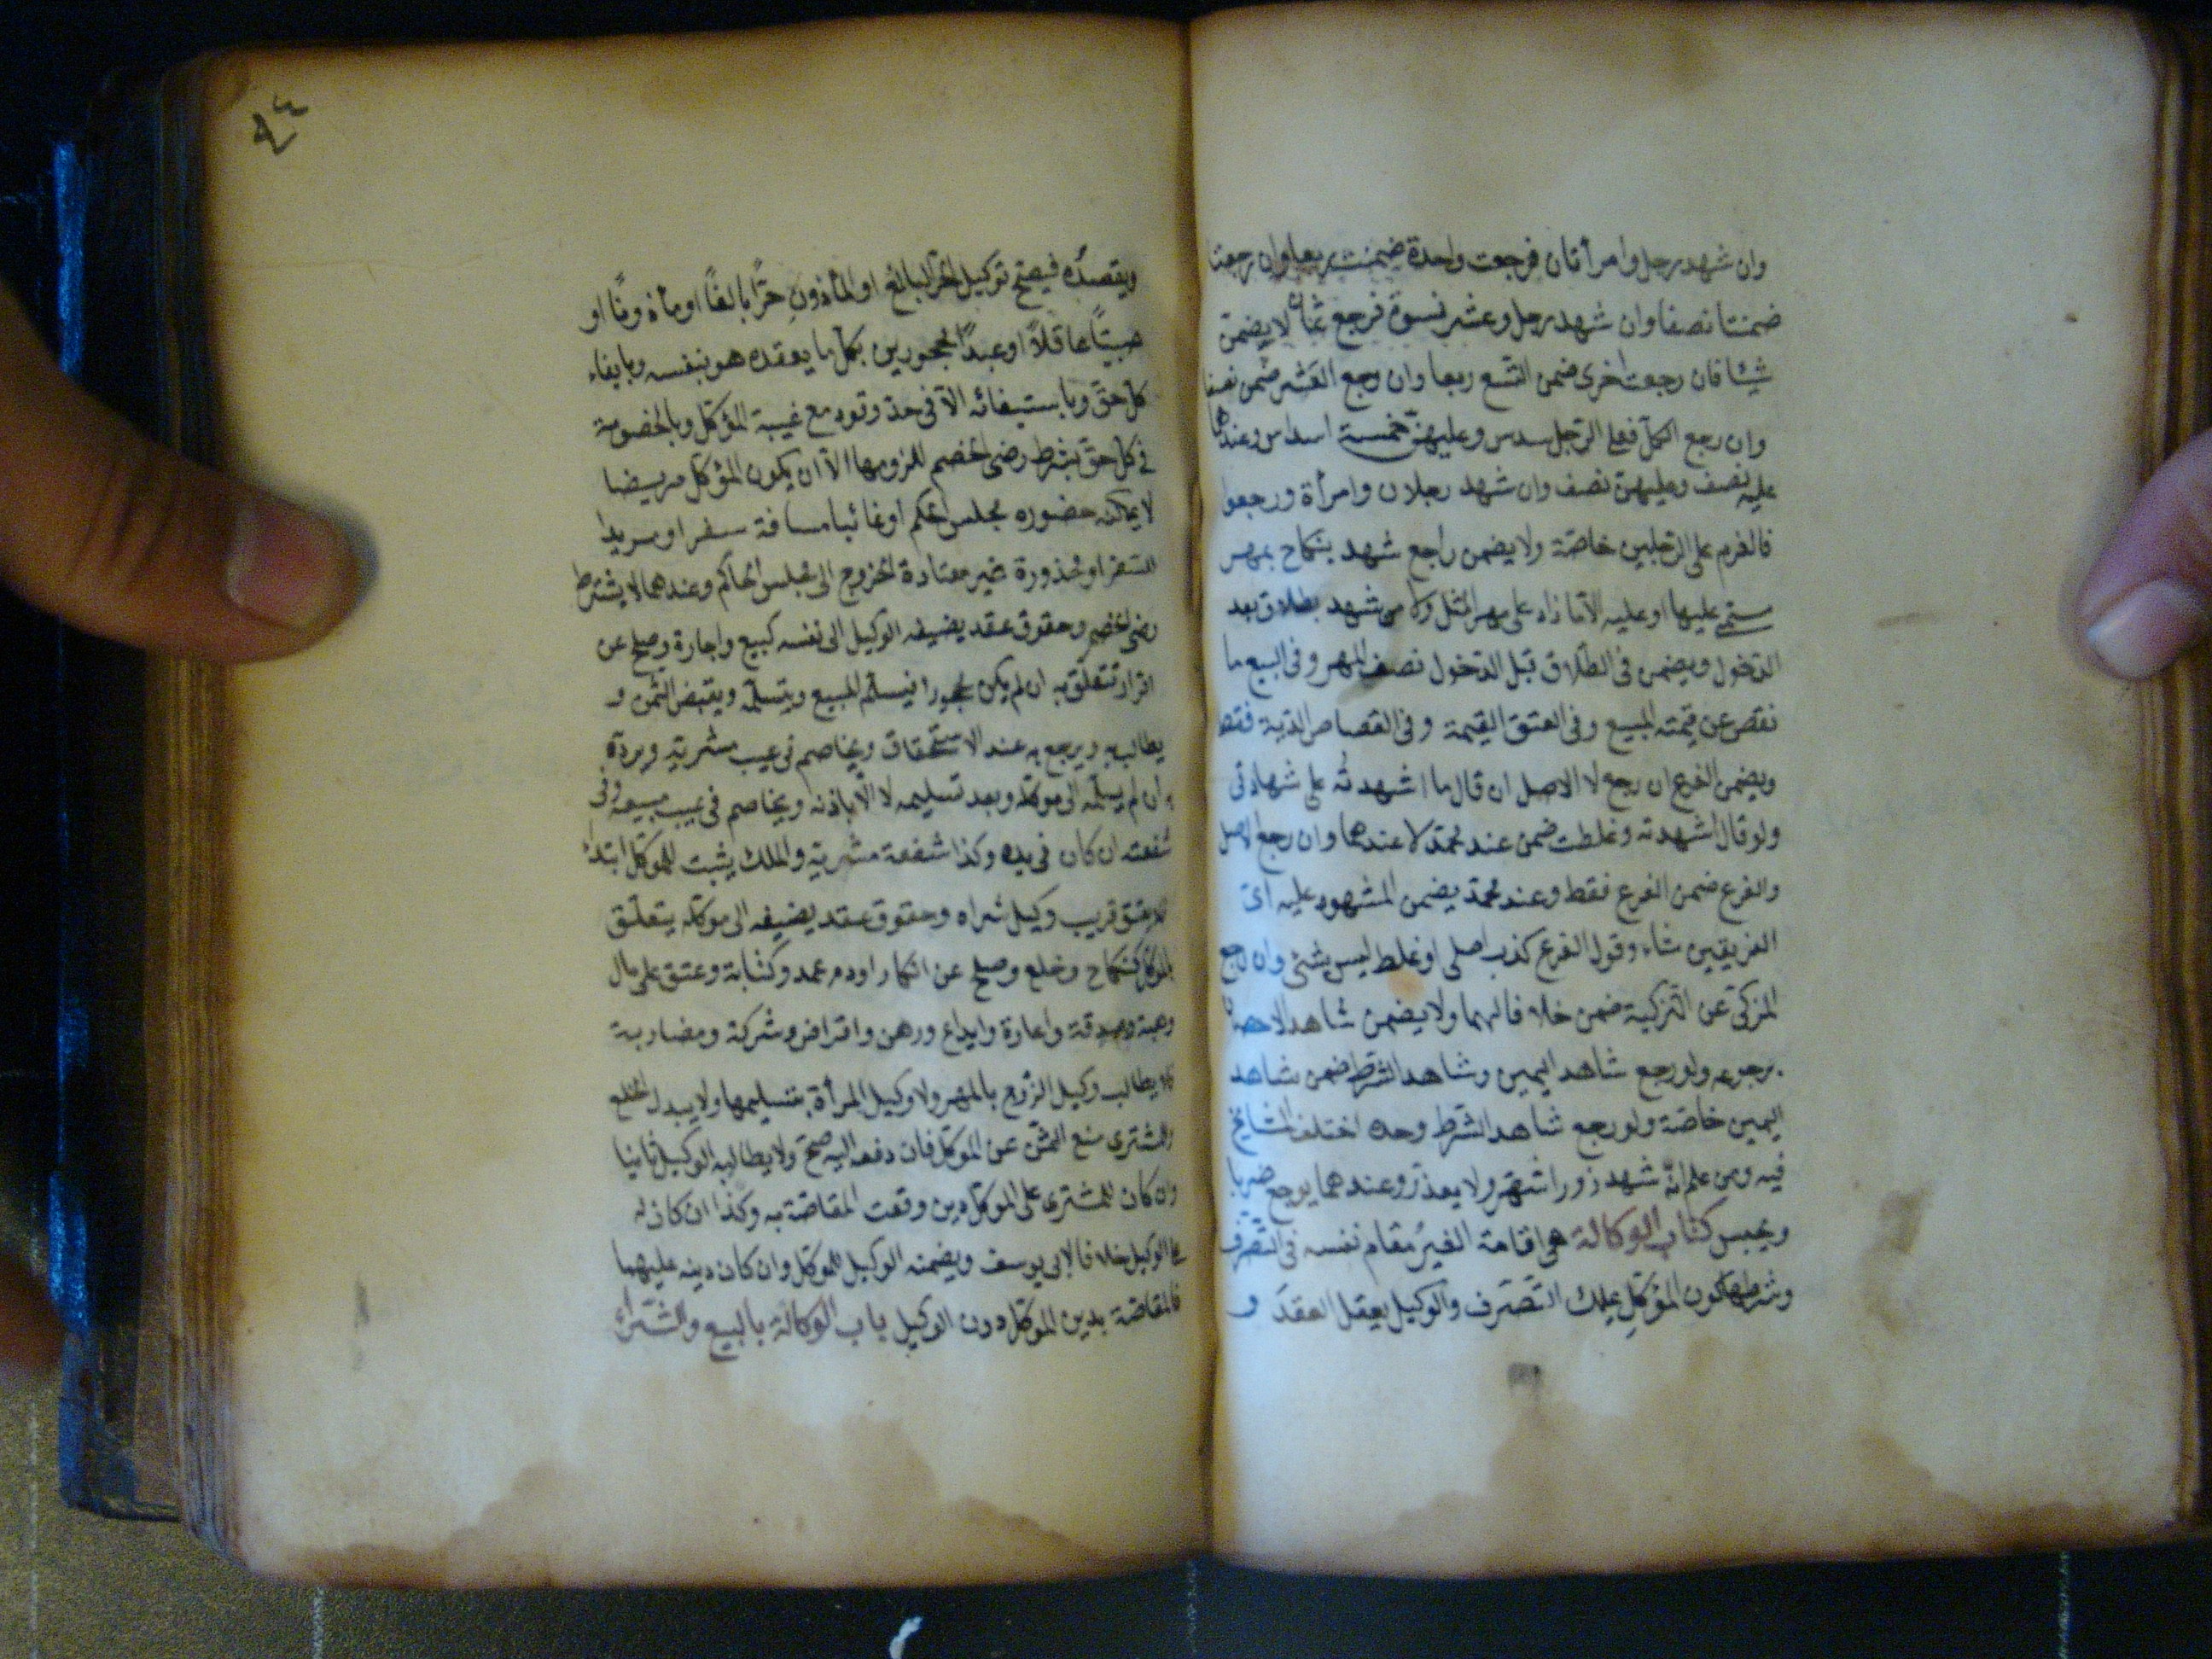 وان شهد رجل وامرأتان فرجعت واحدة ضمنت ربعا وان رجعتا
ضمنتا نصفا وان شهد رجل وعشر نسوة فرجع ثمان لا يضمن
شيئا فان رجعت اخرى ضمن التسع ربعا وان رجع العشر ضمن نصفا
وان رجع الكل فعلى الرجل سدس وعليهن خمسة اسداس وعندهما
عليه نصف وعليهن نصف وان شهد رجلان وامرأة ورجعوا
فالغرم على الرجلين خاصة ولا يضمن راجع شهد بنكاح بمهر
مسمى عليها او عليه الا ما زاد على مهر المثل ولا من شهد بطلاق بعد
الدخول ويضمن فى الطلاق قبل الدخول نصف المهر وفى البيع ما
نقص عن قيمته المبيع وفى العتق القيمة وفى القصاص الدية فقط
ويضمن الفرع ان رجع لا الاصل ان قال ما اشهدتُه على شهادتى
ولو قال اشهدته وغلطت ضمن عند محمد لا عندهما وان رجع الاصل
والفرع ضمن الفرع فقط وعند محمد يضمن المشهود عليه اىّ
الفريقين شاء وقول الفرع كذب اصلى او غلط ليس بشئ وان رجع
المزكّى عن التزكية ضمن خلافا لهما ولا يضمن شاهد الاحصان
برجوعه ولو رجع شاهد اليمين وشاهد الشرط ضمن شاهد
اليمين خاصة ولو رجع شاهد الشرط وحده اختلف المشايخ
فيه ومن علم انّه شهد زورا شهّر ولا يعذر وعندهما يوجع ضربا
ويحبس كتاب الوكالة هى اقامة الغير مقام نفسه فى التصرف
وشرطها كون المؤكّل يملك التصرف والوكيل يعقل العقد و
ويقصدُه فيصح توكيل الحرّ البالغ او المأذونِ حرًّا بالغًا او مأذونًا او
صبيًّا عاقلًا او عبدًا محجورين بكل ما يعقده هو بنفسه وبايفاء
كل حق وباستيفائه الا فى حد وقود مع غيبة المؤكّل وبالخصومة
فى كل حق بشرط رضى الخصم للزومها الا ان يكون المؤكل مريضا
لا يمكنه حضوره مجلس الحكم او غائبا مسافة سفر او مريدا
للسفر او مخدّرة غير معتادة الخروج الى مجلس الحاكم وعندهما لا يشترط
رضى الخصم وحقوق عقد يضيفه الوكيل الى نفسه كبيع واجارة وصلح عن
اقرار تتعلّق به ان لم يكن محجورا فيسلّم المبيع ويتسلّمه ويقبض الثمن و
يطالب به ويرجع به عند الاستحقاق ويخاصم فى عيب مشريّه ويردّه
ان لم يسلّمه الى موكله وبعد تسليمه لا الا باذنه ويخاصم فى عيب مبيعه وفى
شفعته ان كان فى يده وكذا شفعة مشريّه والملك يثبت للموكل ابتداء
فلا يعتق قريب وكيل شراه وحقوق عقد يضيفه الى موكله يتعلّق
بالموكل كنكاح وخلع وصلح عن انكار او دم عمد وكتابة وعتق على مال
وهبة وصدقة واعارة وايداع ورهن واقراض وشركة ومضاربة
فلا يطالب وكيل الزّوج بالمهر ولا وكيل المرأة بتسليمها ولا ببدل الخلع
وللمشترى منع الثمن عن الموكل فان دفعه اليه صح ولا يطالبه الوكيل ثانيا
وان كان للمشترى على الموكل دين وقعت المقاصّة به وكذا ان كان له
على الوكيل خلافا لابى يوسف ويضمنه الوكيل للموكل وان كان دينه عليهما
فالمقاصّة بدين الموكل دون الوكيل باب الوكالة بالبيع والشّراء